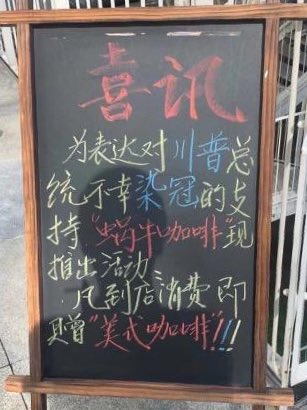 喜讯
为表达对川普总
统不幸染冠的支
持"蜗牛咖啡"现
推出活动:
凡到店消费即
赠"美式咖啡"!!!